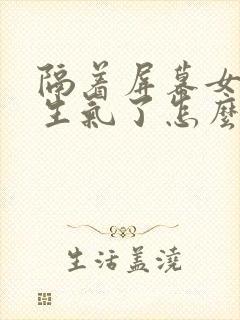 隔着屏幕女
生氣了怎麼
生活盖澆